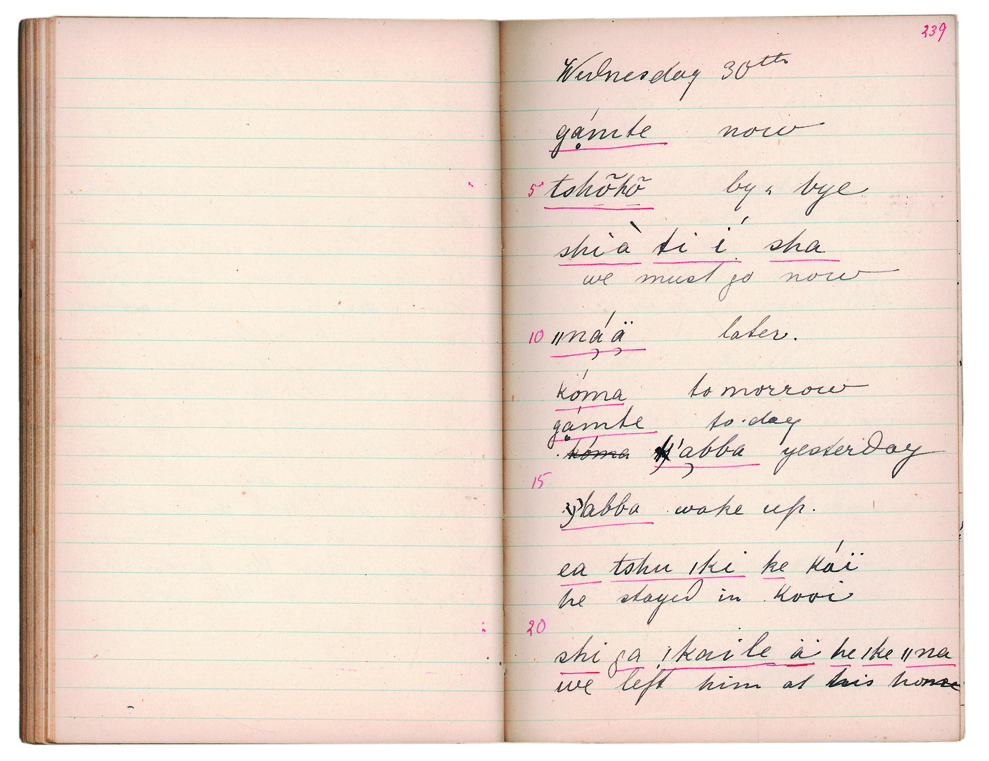 239
Wednesday 30th
gạ́mte now
5 tshõhõ by & bye
shi à ti í sha
we must go now
10 ǁná̦ä̦ later.
kóma tomorrow
gạ́mte to-day
kóma ǁ'abba yesterday
'abba wake up.
ea tshu ǀki ke kȧ́ï
he stayed in Kooi
20 shi ga ǀkaile ä he ǀke ǁna
we left him at his home
15